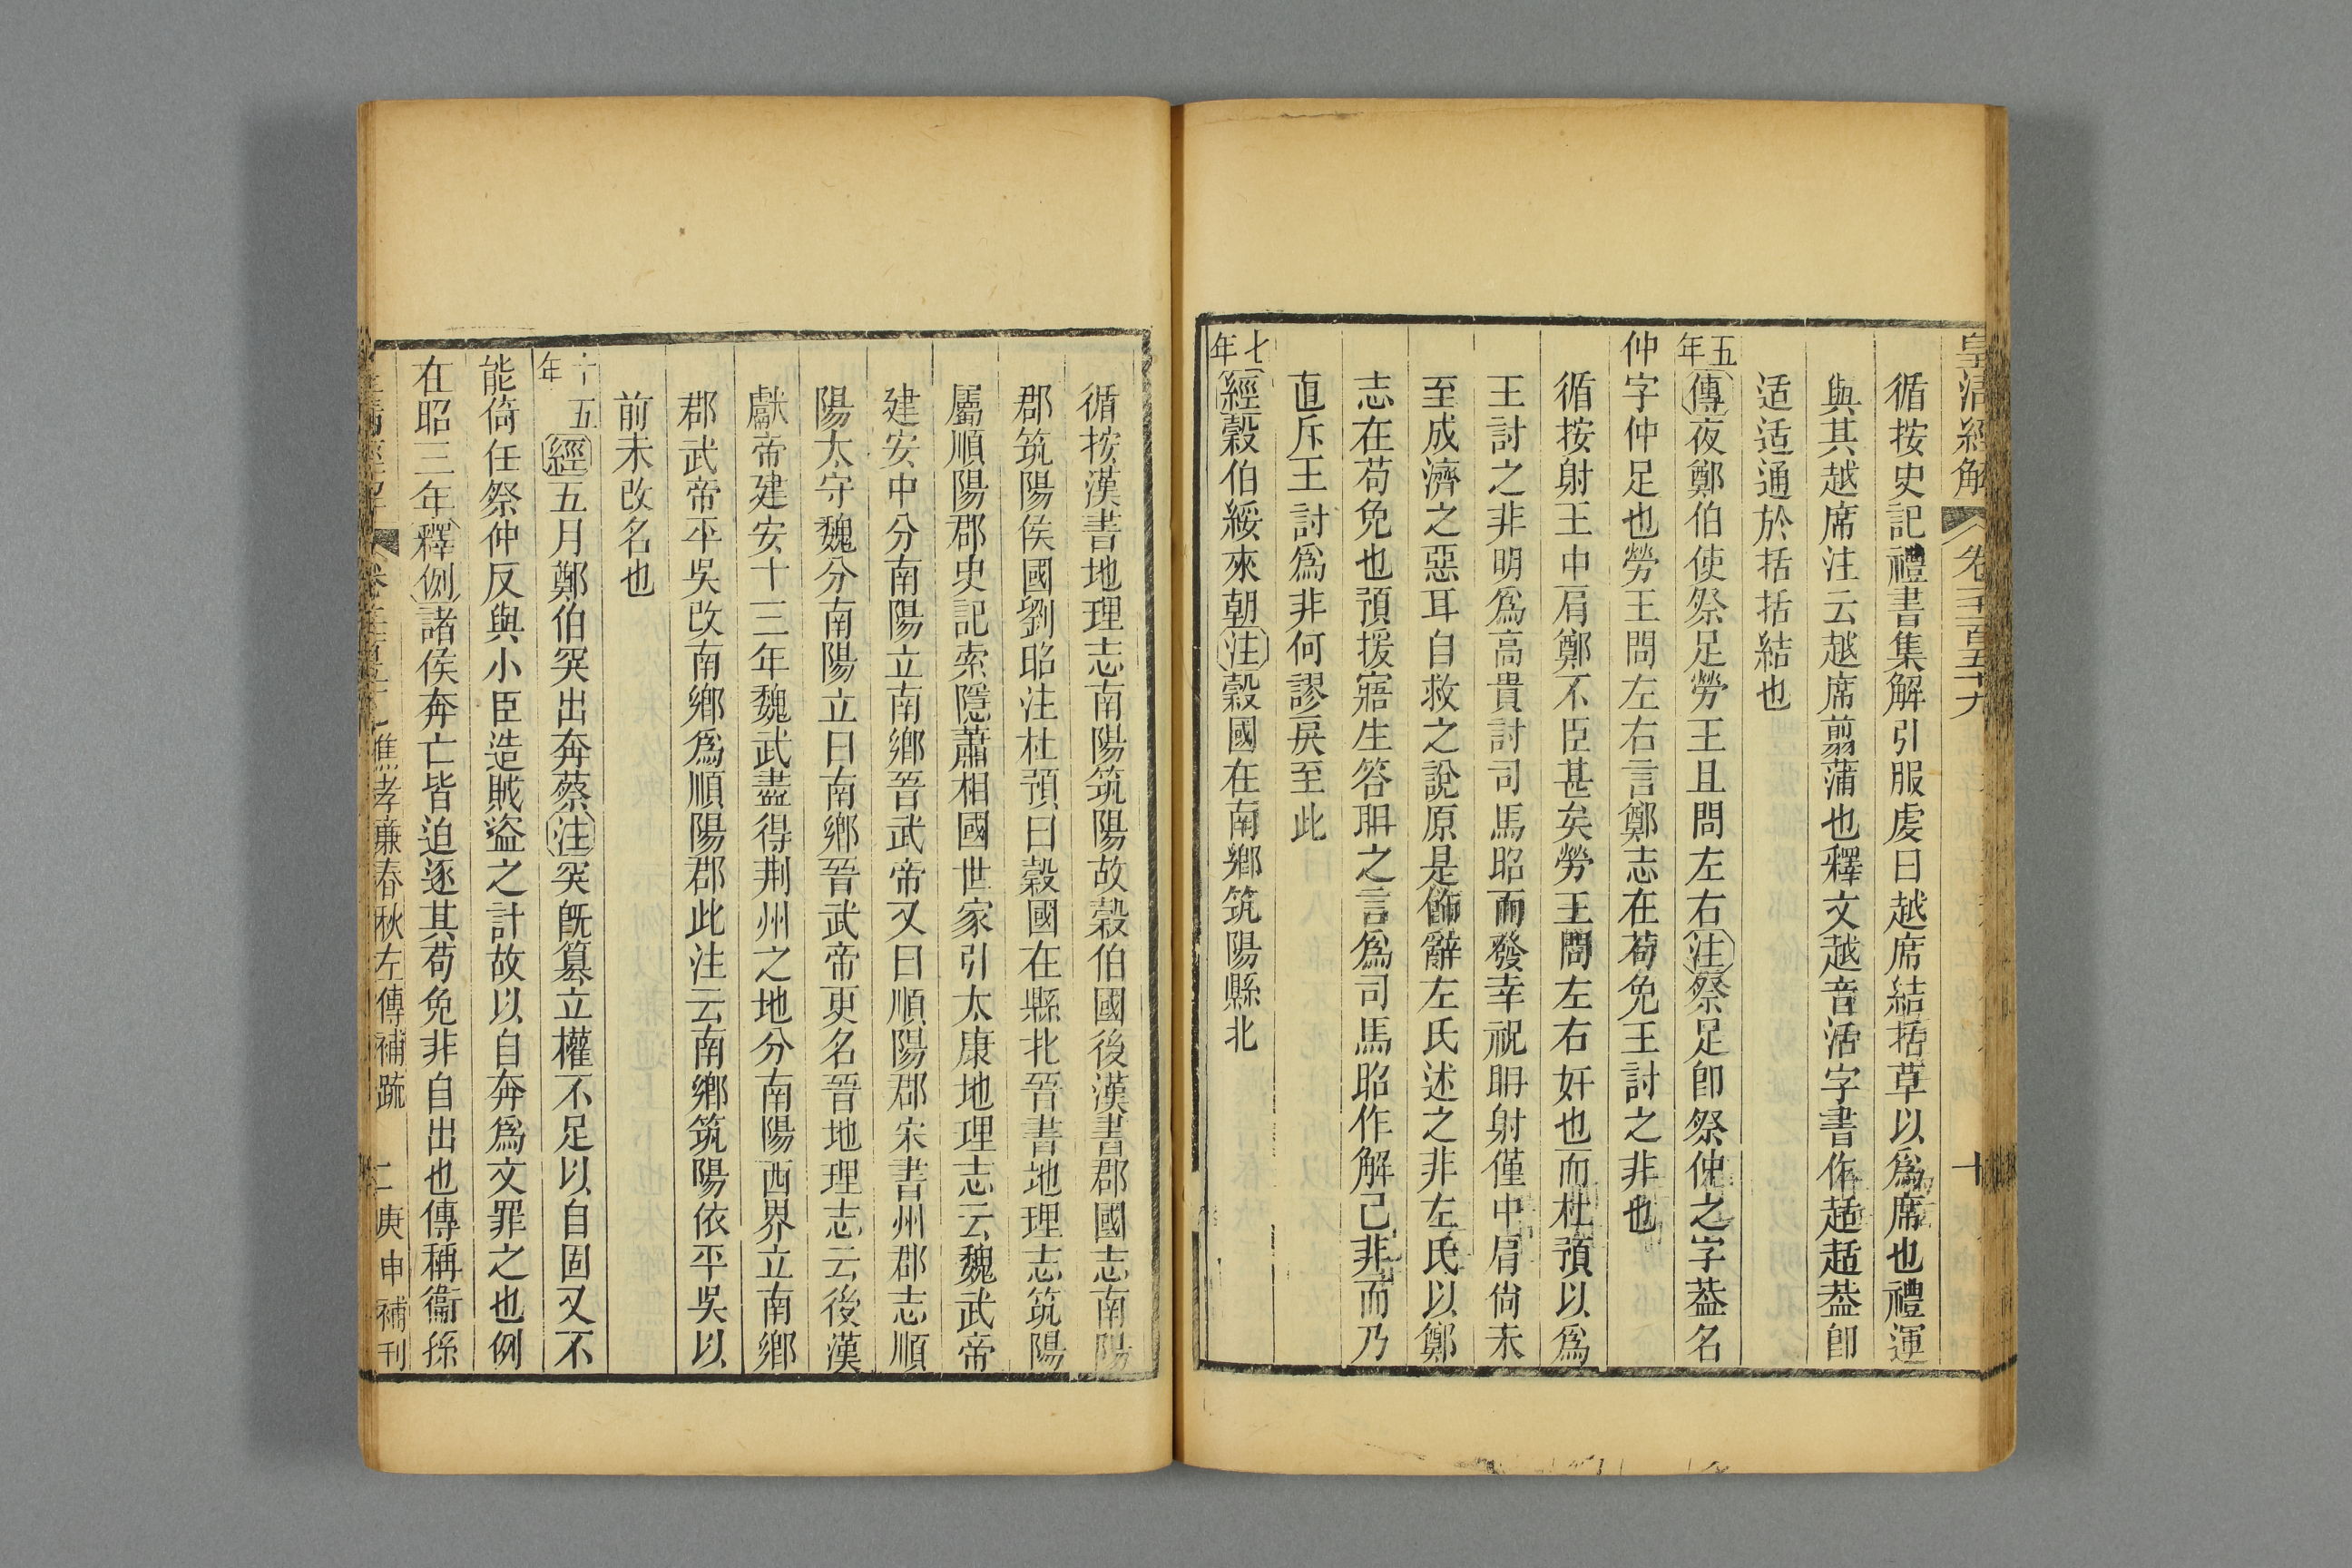 皇淸經解 卷一千一百五十九 十
循按史記禮書集解引服虔曰越席結括草以爲席也禮運
與其越席注云越席翦蒲也釋文越音活字書作趏趏葢卽
适适通於括括結也
五年傳夜鄭伯使祭足勞王且問左右注祭足卽祭仲之字葢名
仲字仲足也勞王問左右言鄭志在苟免王討之非也
循按射王中肩鄭不臣甚矣勞王問左右奸也而杜預以爲
王討之非明爲高貴討司馬昭而發幸祝聃射僅中肩尙未
至成濟之惡耳自救之說原是飾辭左氏述之非左氏以鄭
志在苟免也預援寤生答聃之言爲司馬昭作解己非而乃
直斥王討爲非何謬戾至此
七年經榖伯綏來朝注榖國在南鄉筑陽縣北
循按漢書地理志南陽筑陽故榖伯國後漢書郡國志南陽
郡筑陽侯國劉昭注杜預曰榖國在縣北晉書地理志筑陽
屬順陽郡史記索隱蕭相國世家引太康地理志云魏武帝
建安中分南陽立南鄉晉武帝又曰順陽郡宋書州郡志順
陽太守魏分南陽立曰南鄉晉武帝更名晉地理志云後漢
獻帝建安十三年魏武盡得荆州之地分南陽西界立南鄉
郡武帝平吳改南鄉爲順陽郡此注云南鄉筑陽依平吳以
前未改名也
十五年經五月鄭伯突出奔蔡注突旣簒立權不足以自固又不
能倚任祭仲反與小臣造賊盜之計故以自奔爲文罪之也例
在昭三年釋例諸侯奔亡皆迫逐其苟免非自出也傳稱衞孫
焦孝廉春秋左傳補疏 二 庚申補刊